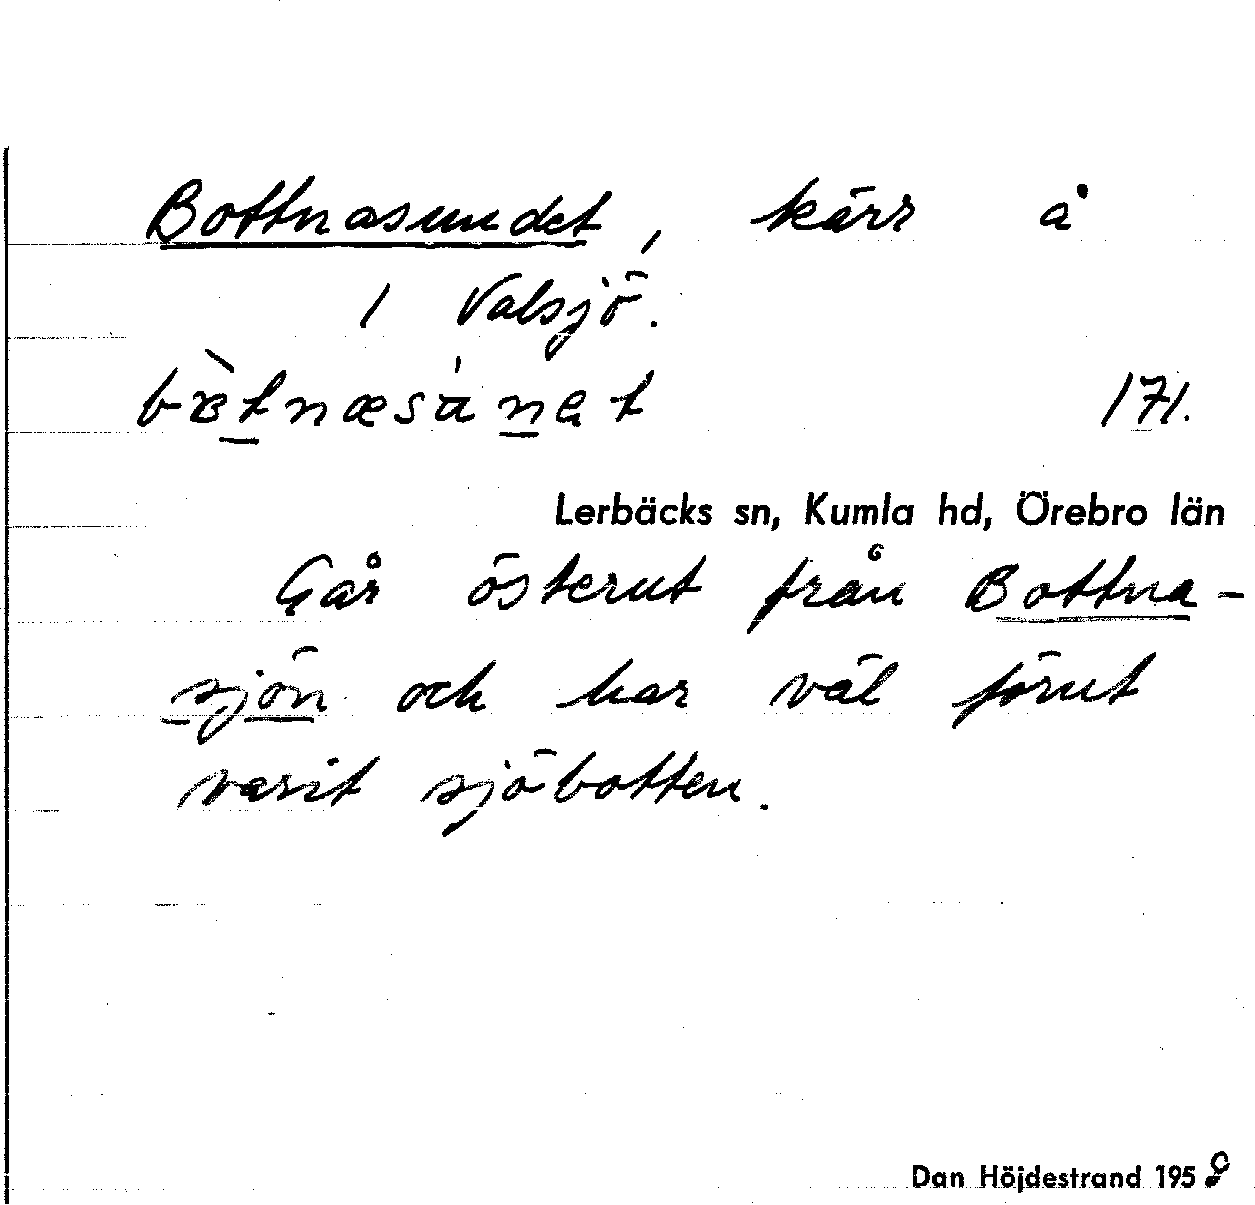 Bottnasundet, kärr å
1 Valsjö.
171.
Lerbäcks sn, Kumla hd, Örebro län
Går österut från Bottna-
sjön och har väl förut
varit sjöbotten.
Dan Höjdestrand 195